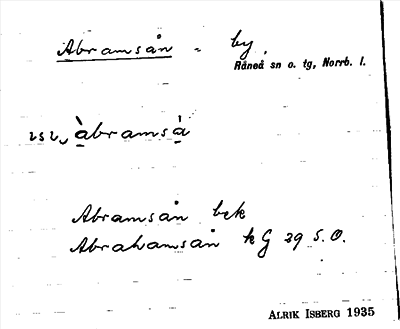 Abramsån - by.
Råneå sn o. tg, Norrb. l.
àbramså̀
Abramsån bek
Abrahamsån kG 29 S.O.
ALRIK ISBERG 1935